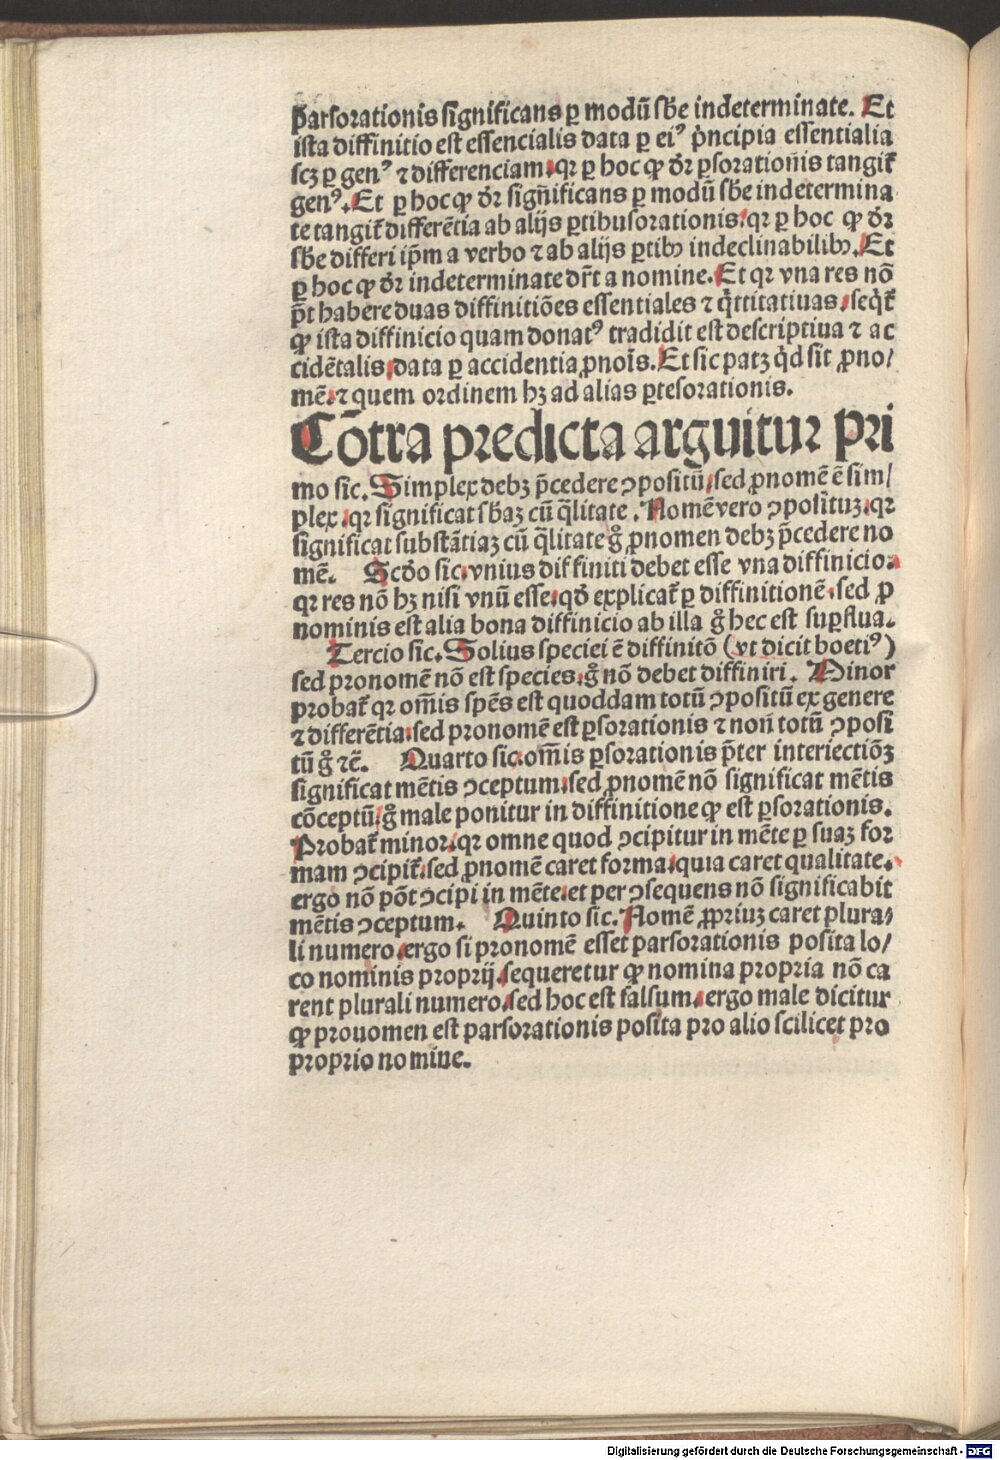 ꝑarſorationis ſignificans ꝑ modū ſb̄e indeterminate. Et
iſta diffinitio eſt eſſencialis data ꝑ eiꝰ pͥncipia eſſentialia
ſcꝫ ꝑ genꝰ ⁊ differenciam. qꝛ ꝑ hoc ꝙ dꝛ̄ ꝑſoration̄is tangit᷑
genꝰ. Et ꝑ hoc ꝙ dꝛ̄ ſign̄ificans ꝑ modū ſb̄e indetermina
te tangit᷑ differētia ab alijs ꝑtibuſorationis. qꝛ ꝑ hoc ꝙ dꝛ̄
ſb̄e differi ip̄m a verbo ⁊ ab alijs ꝑtibꝫ indeclinabilibꝫ. Et
ꝑ hoc ꝙ dꝛ̄ indeterminate dr̄t a nomine. Et qꝛ vna res nō
p̄t habere duas diffinitiōes eſſentiales ⁊ q̈ttitatiuas. ſeqͥt᷑
ꝙ iſta diffinicio quam donatꝰ tradidit eſt deſcriptiua ⁊ ac
cidētalis. data ꝑ accidentia ꝓnoīs. Et ſic patꝫ qͥd ſit ꝓno/
mē. ⁊ quem ordinem hꝫ ad alias ꝑteſorationis.
Cōtra predicta arguitur pri
mo ſic. Simplex debꝫ p̄cedere ꝯpoſitū. ſed ꝓnomē ē ſim/
plex. qꝛ significat ſb̄aꝫ cū q̄litate. Nomē vero ꝯpoſitū. qꝛ
ſignificat ſubſtātiaꝫ cū q̄litate gͦ ꝓnomen debꝫ p̄cedere no
mē. Scd̄o ſic. vnius diffiniti debet eſſe vna diffinicio.
qꝛ res nō hꝫ niſi vnū eſſe. qd̄ explicat᷑ ꝑ diffinitionē. ſed ꝓ
nominis eſt alia bona diffinicio ab illa gͦ hec eſt ſuꝑflua.
Tercio ſic. Solius ſpeciei ē diffinitō (vt dicit boetiꝰ)
ſed pronomē nō eſt ſpecies. gͦ nō debet diffiniri. Minor
probat᷑ qꝛ om̄is ſpēs eſt quoddam totū ꝯpoſitū ex genere
⁊ differētia. ſed pronomē eſt ꝑſorationis ⁊ non̄ totū ꝯpoſi
tū gͦ ⁊c̄. Quarto ſic. om̄is ꝑſorationis p̄ter interiectiōꝫ
ſignificat mētis ꝯceptum. ſed ꝓnomē nō ſignificat mētis
cōceptū. gͦ male ponitur in diffinitione ꝙ eſt ꝑſorationis.
Probat᷑ minor. qꝛ omne quod ꝯcipitur in mēte ꝑ ſuaꝫ for
mam ꝯcipit᷑. ſed ꝓnomē caret forma. quia caret qualitate.
ergo nō pōt ꝯcipi in mēte. et per ꝯſequens nō ſignificabit
mētis ꝯceptum. Quinto ſic. Nomē ꝓpriuꝫ caret plura/
li numero. ergo ſi pronomē eſſet parſorationis poſita lo/
co nominis proprij. ſequeretur ꝙ nomina propria nō ca
rent plurali numero. ſed hoc eſt falſum. ergo male dicitur
ꝙ prouomen eſt parſorationis poſita pro alio ſcilicet pro
proprio nomine.
Digitalisierung gefördert durch die Deutsche Forschungsgemeinschaft - DFG